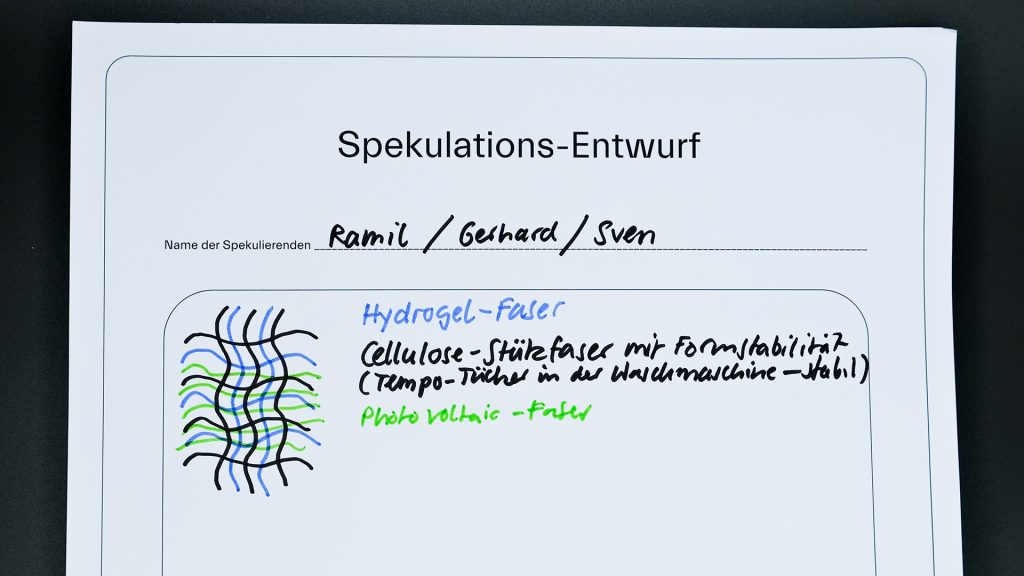 Spekulations-Entwurf
Name der Spekulierenden Ramil / Gerhard / Sven
Hydrogel-Faser
Cellulose-Stützfaser mit Formstabilität
(Tempo-Tücher in der Waschmaschine-stabil)
Photovoltaic-Faser